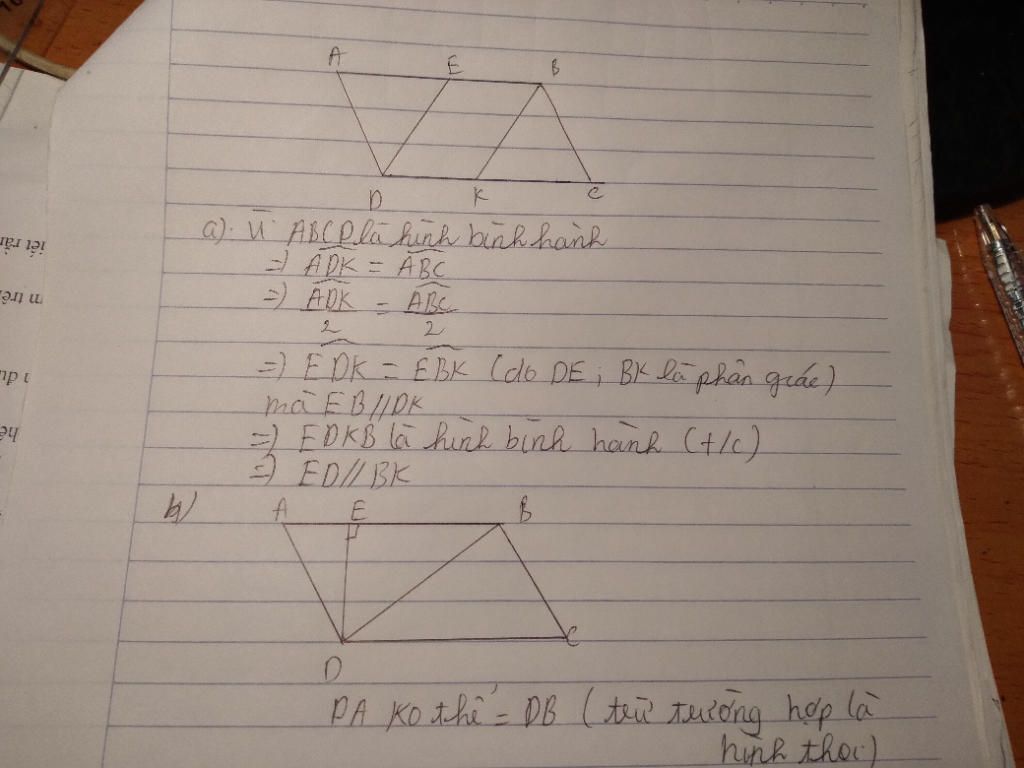 A E B
D K C
a). Vì ABCD là hình bình hành
=) ADK = ABC
=) ADK/2 = ABC/2
=) EDK = EBK (do DE; BK là phân giác)
mà EB//DK
=) EDKB là hình bình hành (t/c)
=) ED//BK
b) A E B
D C
DA ko thể = DB (trừ trường hợp là
hình thoi)